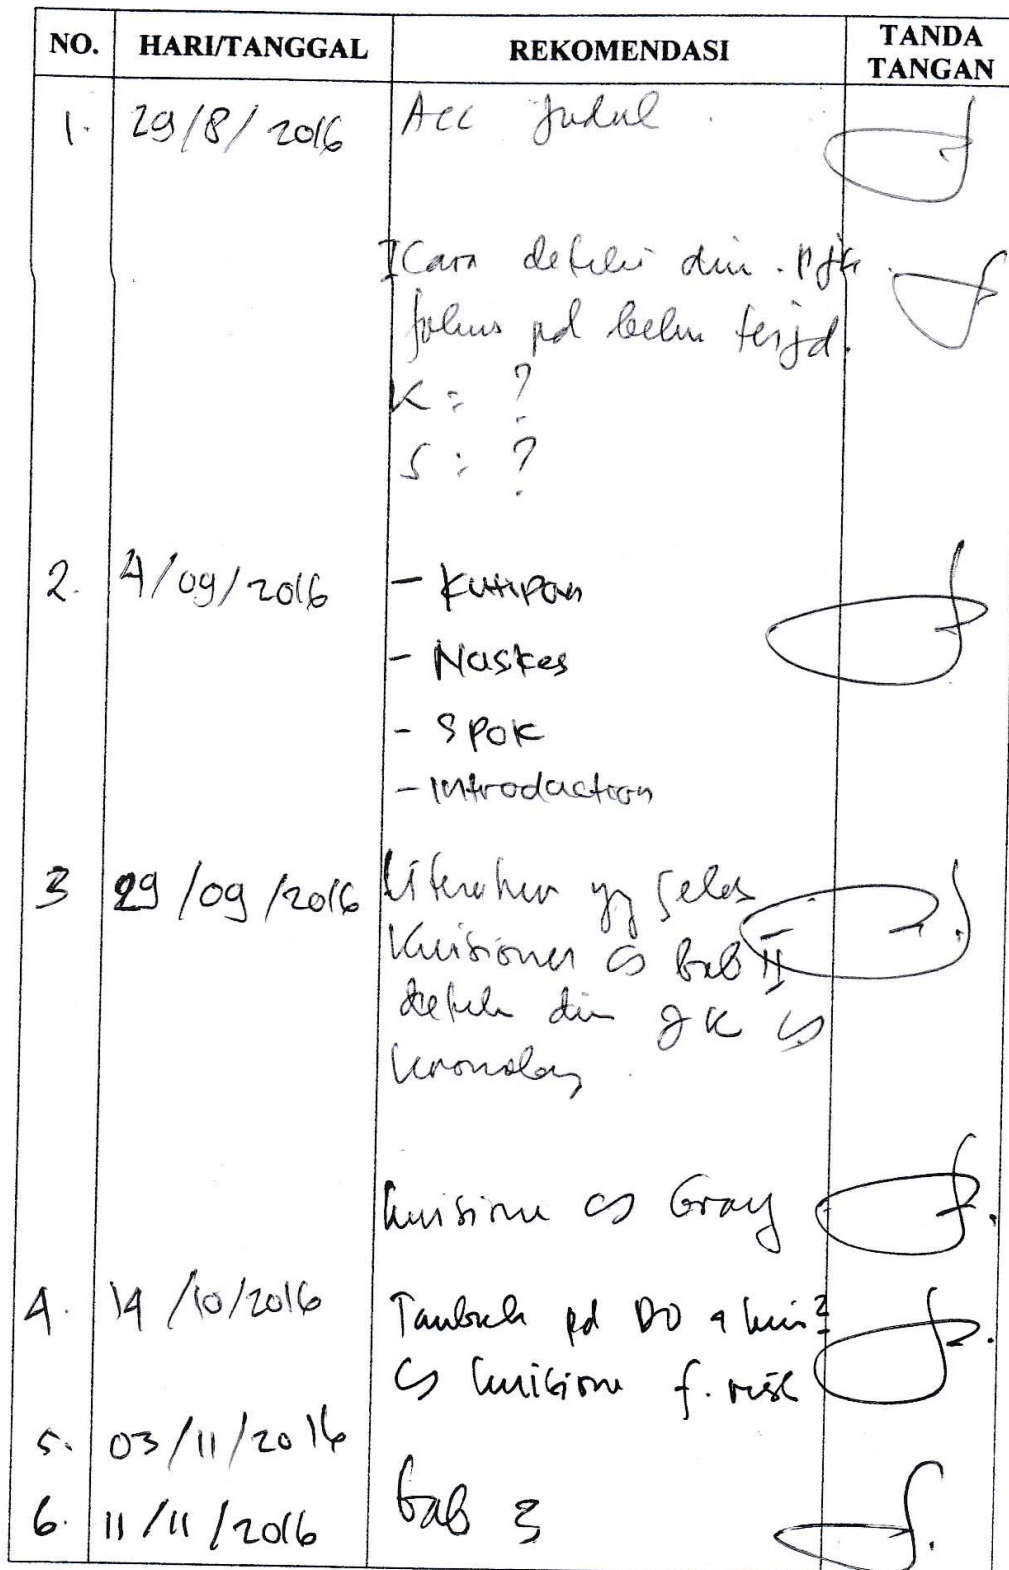 NO. HARI/TANGGAL REKOMENDASI TANDA TANGAN
1. 29/8/2016 Acc Judul.
ICara deteksi dini. PJK
fokus pd belum terjd.
K = ?
S : ?
2. 4/09/2016 - Kutipan
- Naskes
- SPOK
- Introduction
3 29/09/2016 Literatur yg jelas
Kuisioner Bab II
deteksi dini JK
kronolog
kuisione Gray
4. 14/10/2016 Tambah pd DO
kuisione f. risk
5. 03/11/2016
6. 11/11/2016 Bab 3